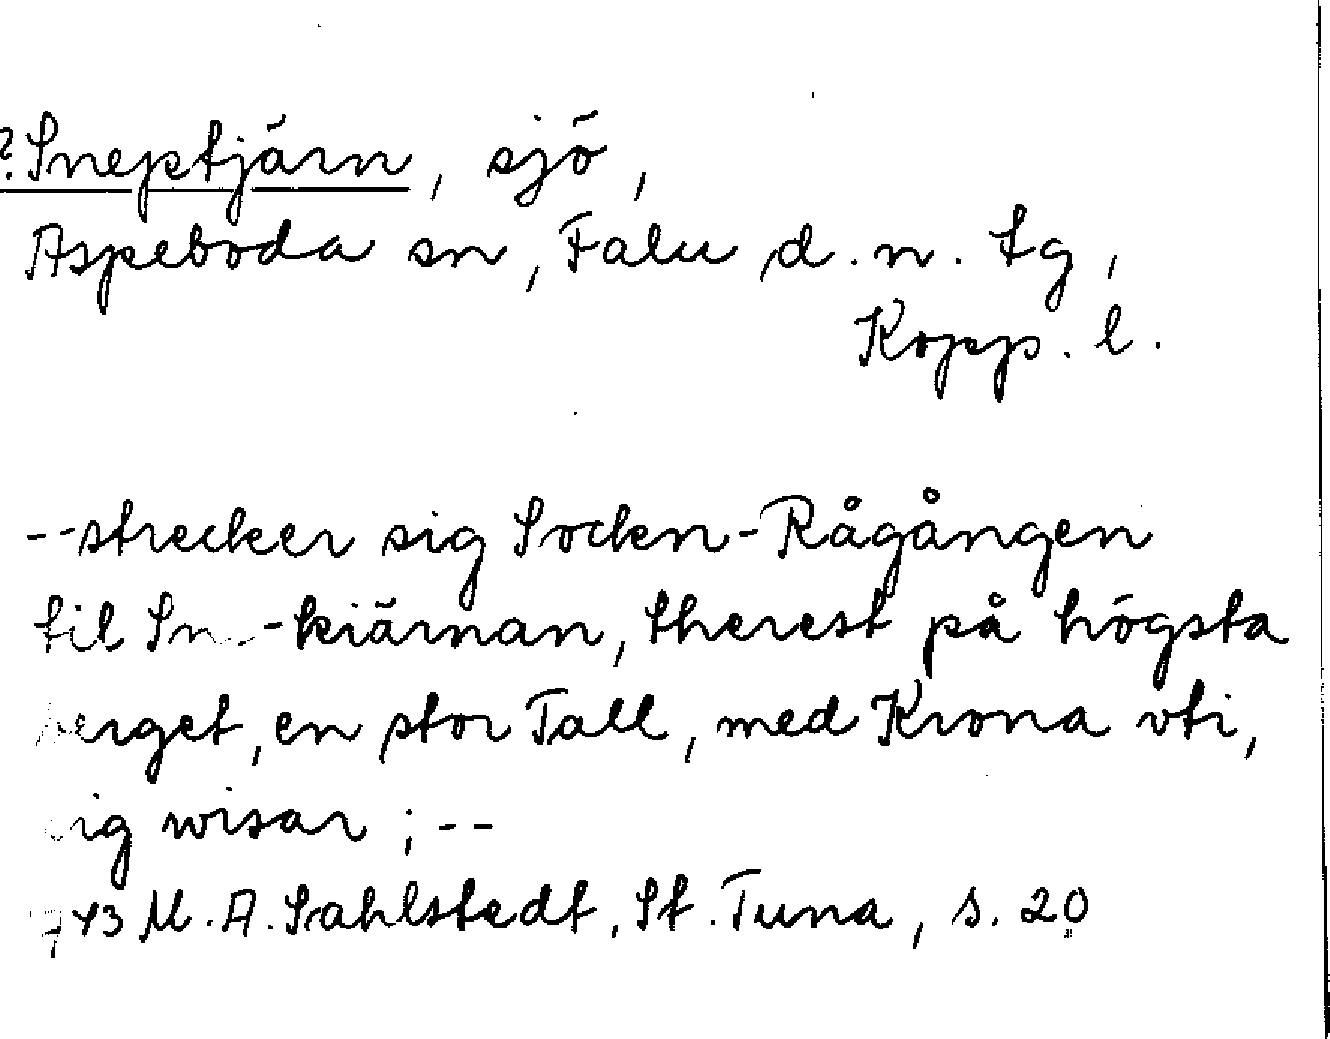 ?Sneptjärn, sjö,
Aspeboda sn, Falu d.n. tg,
Kopp. l.
--strecker sig Socken-Rågången
til -kiärnan, therest på högsta
berget, en stor Tall, med Krona vti,
sig wisar ; --
1743 M.A. Sahlstedt, St. Tuna, s. 20